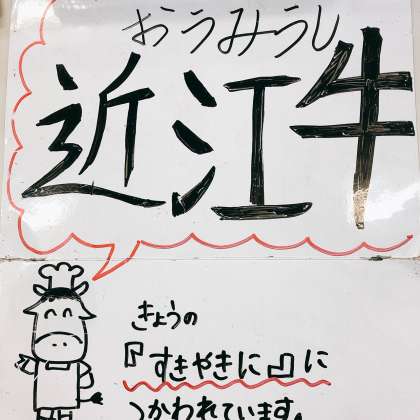 おうみうし
近江牛
きょうの
『すきやきに』に
つかわれています。